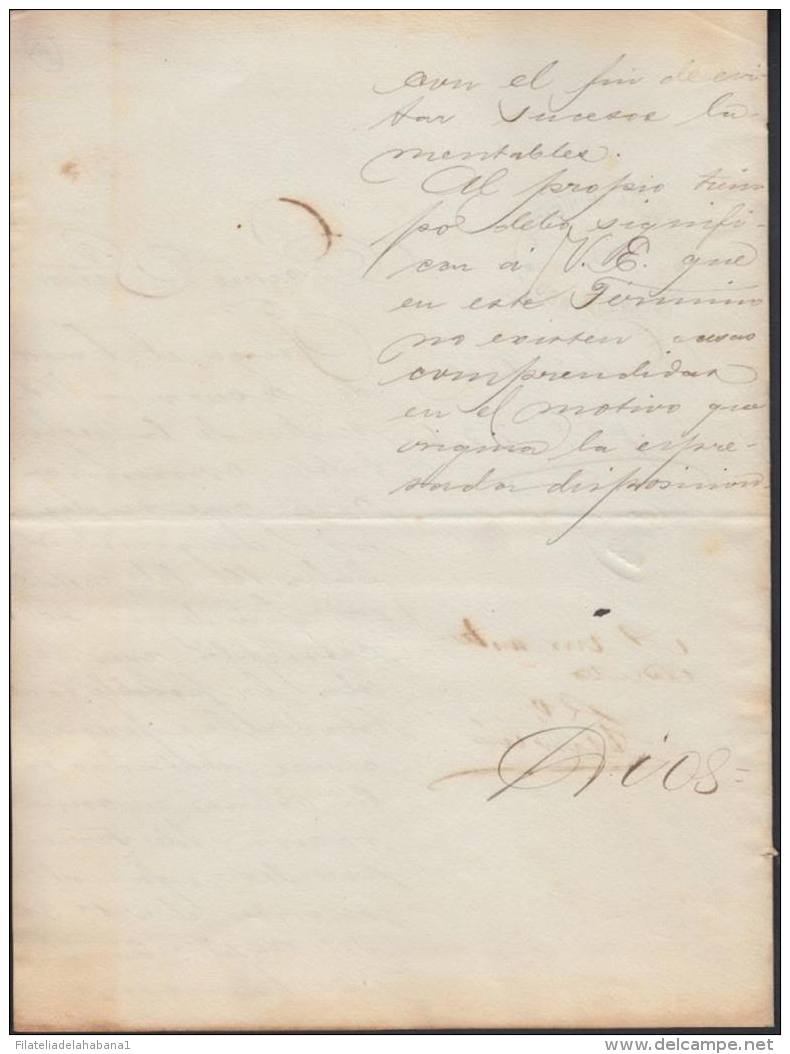 con el fin de evi-
tar sucesos la-
mentables.
Al propio tiem
po debo signifi-
car á V.E. que
en este Término
no existen casas
comprendidas
en el motivo que
origina la espre-
sada disposicion.
Dios=
Filateliadelahabana1
www.delcampe.net